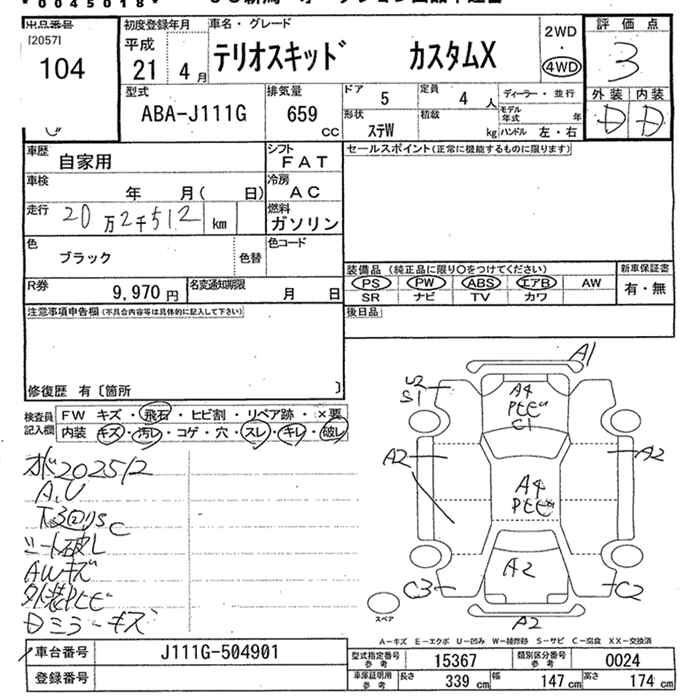 0045018
出品番号
[2057]
104
初度登録年月
平成
21 4 月
車名・グレード
テリオスキッド カスタムX
2WD
・
4WD
評価点
3
外装 内装
D D
型式
ABA-J111G
排気量
659 CC
ドア 5
定員 4 人
形状 ステW
積載 kg
ディーラー・並行
モデル年式 年
ハンドル 左・右
車歴
自家用
シフト
FAT
車検
年 月( 日)
冷房
AC
走行
20万2千512 km
燃料
ガソリン
色
ブラック
色替
色コード
R券
9,970 円
名変通知期限
月 日
セールスポイント(正常に機能するものに限ります)
装備品 (純正品に限り○をつけてください)
PS PW ABS エアB AW
SR ナビ TV カワ
新車保証書
有・無
後日品
注意事項申告欄(不具合内容等は具体的に記入して下さい)
修復歴 有〔箇所 〕
検査員
記入欄
FW キズ・飛石・ヒビ割・リペア跡・×要
内装 キズ・汚レ・コゲ・穴・スレ・キレ・破レ
202512
A.U
シート破レ
AWキズ
外装Pトビ
Dミラーキズ
A1
U2
S1
A4
Pトビ
C1
A2
A2
A4
Pトビ
A2
C3
C2
A2
スペア
A-キズ E-エクボ U-凹み W-補修跡 S-サビ C-腐食 XX-交換済
車台番号
J111G-504901
登録番号
型式指定番号
参考
15367
類別区分番号
参考
0024
車庫証明用
参考
長さ 339 cm
幅 147 cm
高さ 174 cm